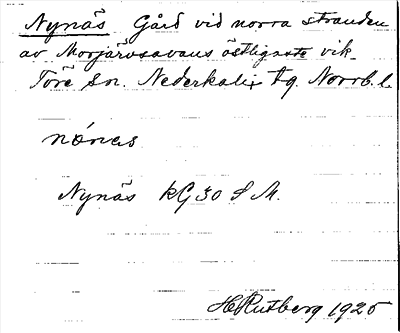 Nynäs Gård vid norra stranden
av Morjärvsavans östligaste vik
Töre Sn. Nederkalix tg. Norrb. l.
nónes
Nynäs KG 30 S M.
H Rutberg 1925